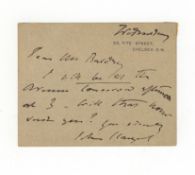 Wednesday
33, TITE STREET,
CHELSEA. S.W.
Dear Mrs
I will be at the
tomorrow afternoon
at 3 - will that hour
suit you? Yrs sincerely
John